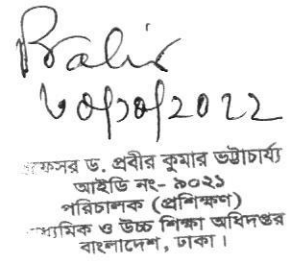 ৩০/১০/২০২২
প্রফেসর ড. প্রবীর কুমার ভট্টাচার্য্য
আইডি নং- ৯০২১
পরিচালক (প্রশিক্ষণ)
মাধ্যমিক ও উচ্চ শিক্ষা অধিদপ্তর
বাংলাদেশ, ঢাকা।